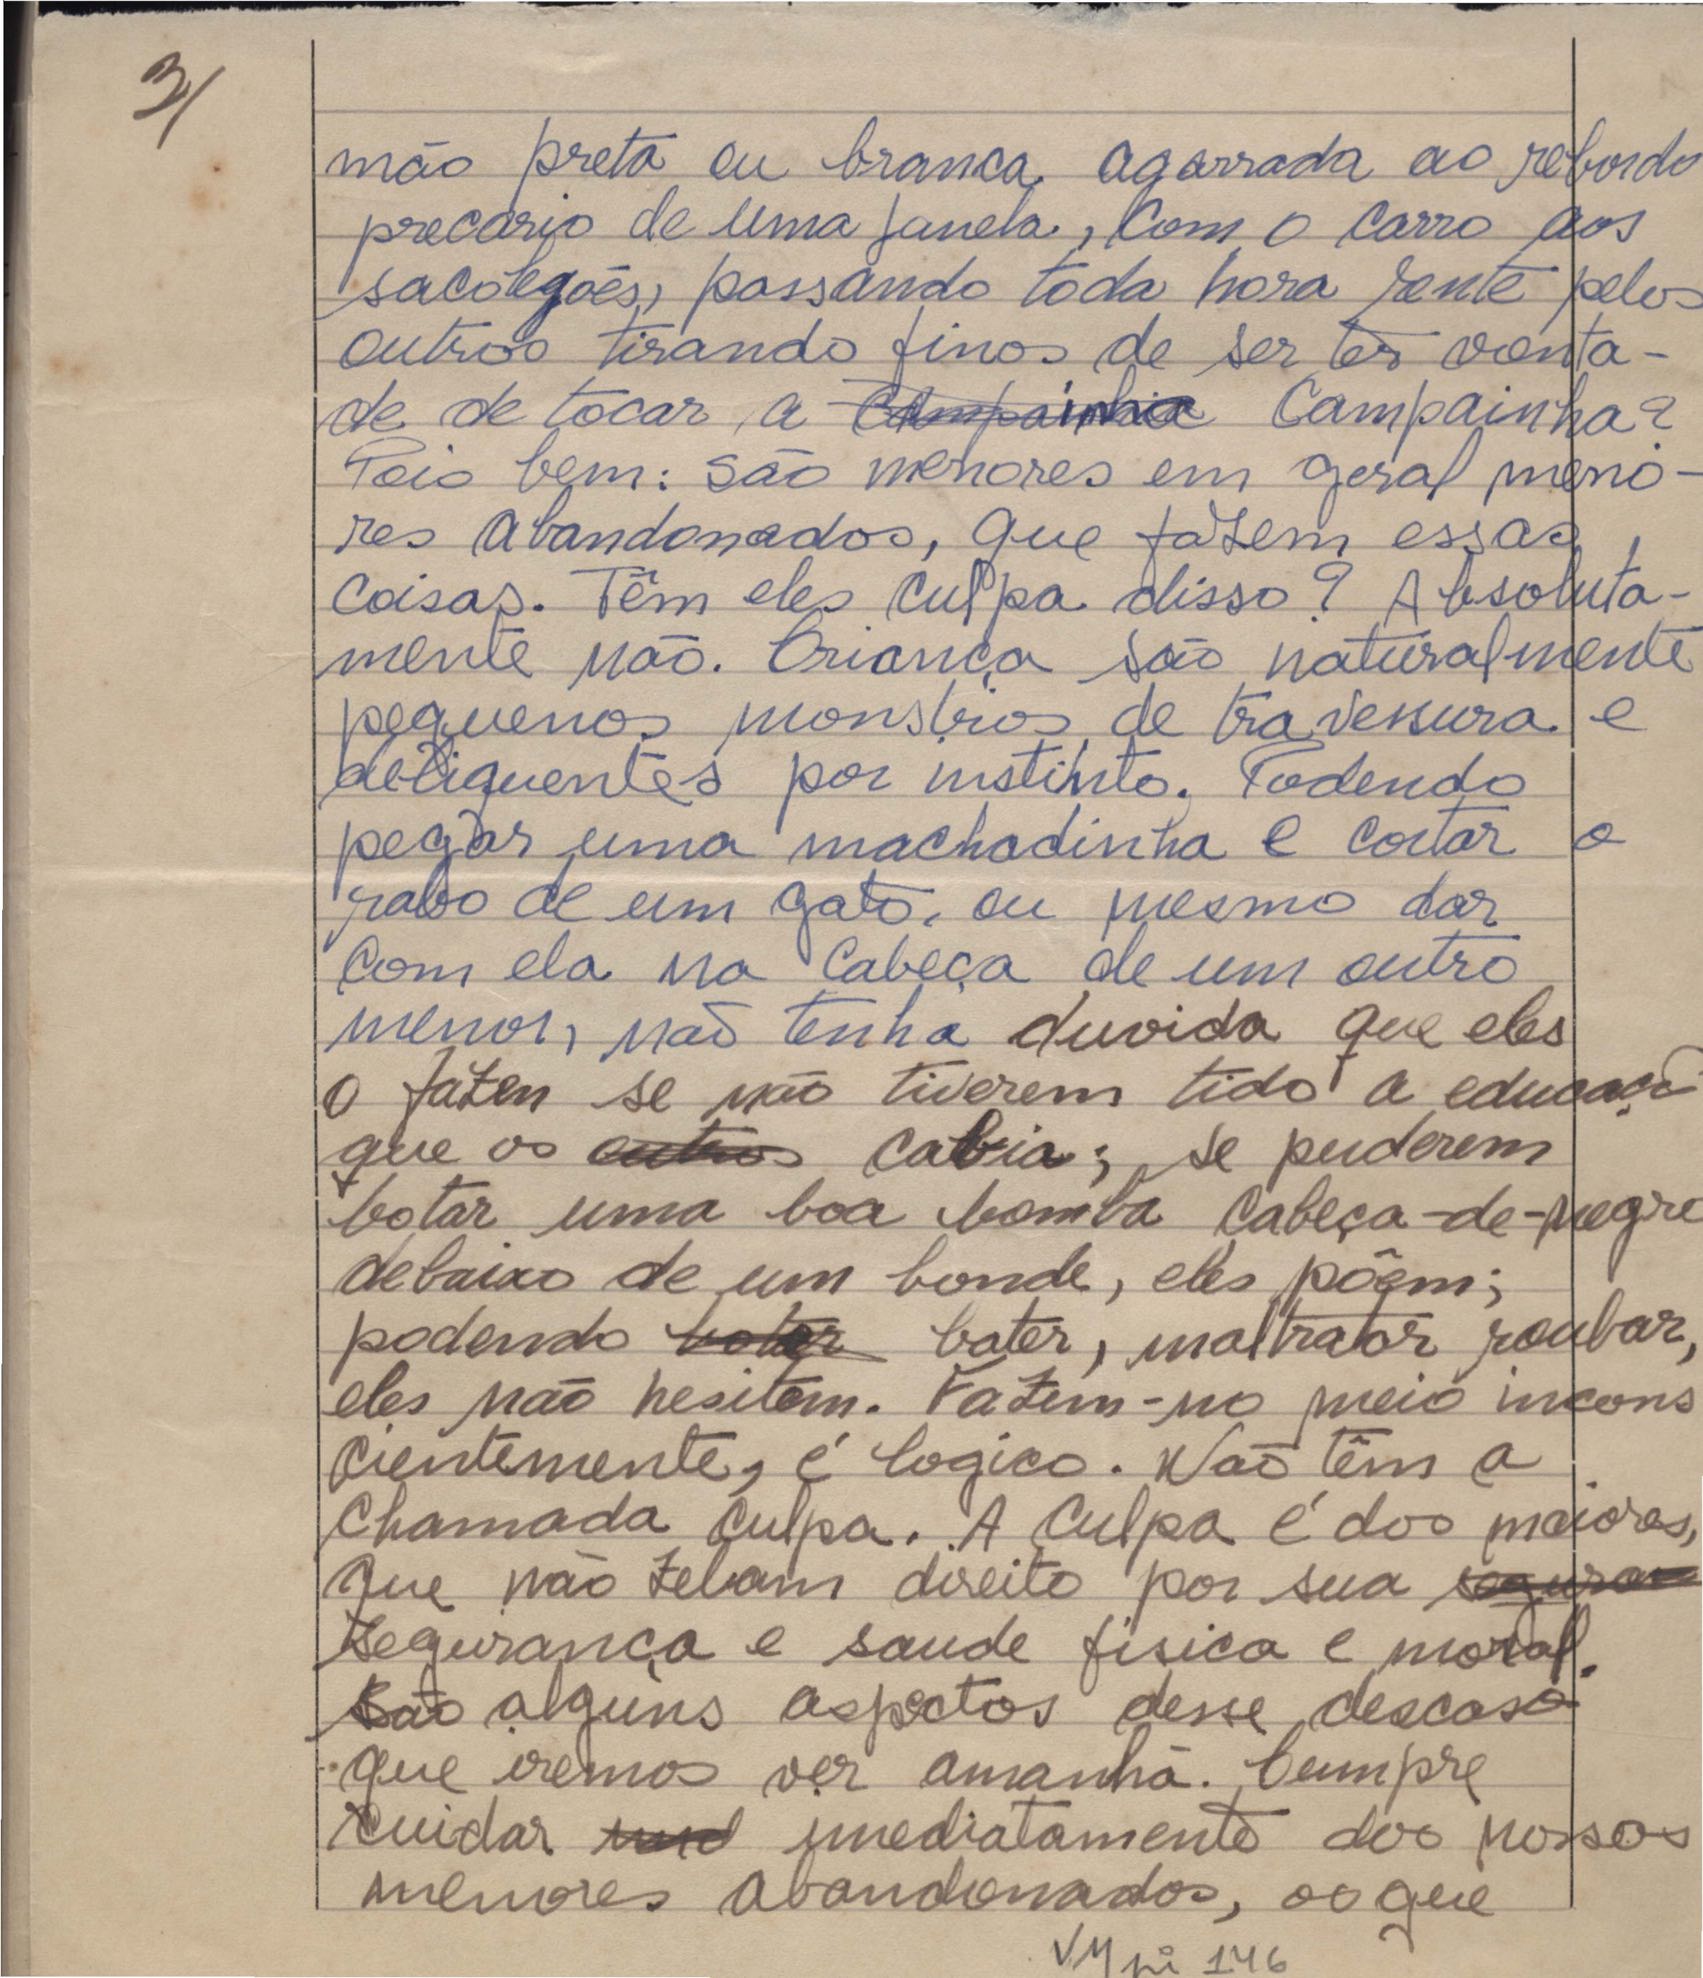 3/
mão preta ou branca agarrada ao rebordo
precario de uma janela, com o carro aos
sacolegões, passando toda hora rente pelos
outros tirando finos de ser ter vonta-
de de tocar a campainha campainha?
Pois bem: são menores em geral meno-
res abandonados, que fazem essas
coisas. Têm eles culpa disso? Absoluta-
mente não. Criança são naturalmente
pequenos monstros de travessura e
deliquentes por instinto. Podendo
pegar uma machadinha e cortar o
rabo de um gato, ou mesmo dar
com ela na cabeça de um outro
menor, não tenha duvida que eles
o fazem se não tiverem tido a educação
que os outros cabia; se puderem
botar uma boa bomba cabeça-de-negro
debaixo de um bonde, eles põem;
podendo botar bater, maltratar roubar,
eles não hesitam. Fazem-no meio incons
cientemente, é logico. Não têm a
chamada culpa. A culpa é dos maiores,
que não zelam direito por sua seguran
segurança e saude fisica e moral.
São alguns aspectos desse descaso
que iremos ver amanhã. Cumpre
cuidar imediatamente dos nossos
menores abandonados, os que
VM pi 146